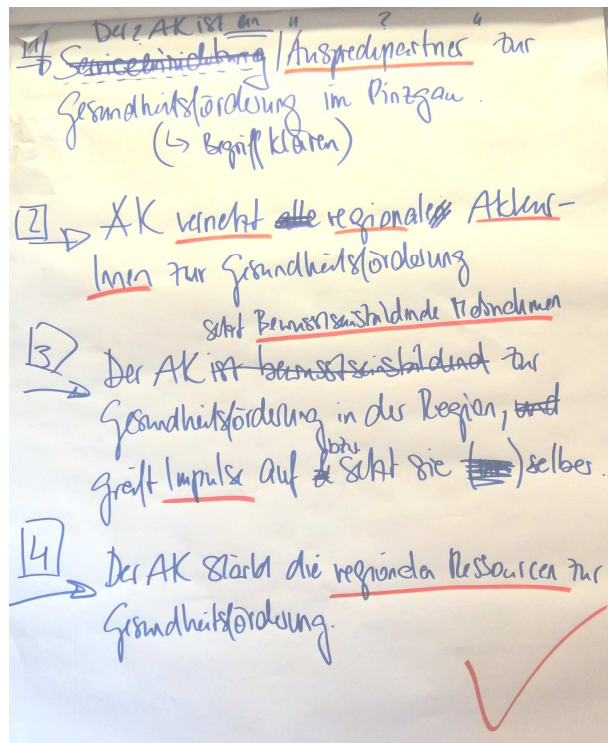 Der ? AK ist ein " ? "
1 Serviceeinrichtung / Ansprechpartner zur
Gesundheitsförderung im Pinzgau.
(↳ Begriff klären)
2 AK vernetzt alle regionale Akteur-
Innen zur Gesundheitsförderung
setzt Bewusstseinsbildende Maßnahmen
3 Der AK ist bewusstseinsbildend zur
Gesundheitsförderung in der Region, und
bzw.
greift Impulse auf & setzt sie ( ) selber.
4 Der AK stärkt die regionalen Ressourcen zur
Gesundheitsförderung.